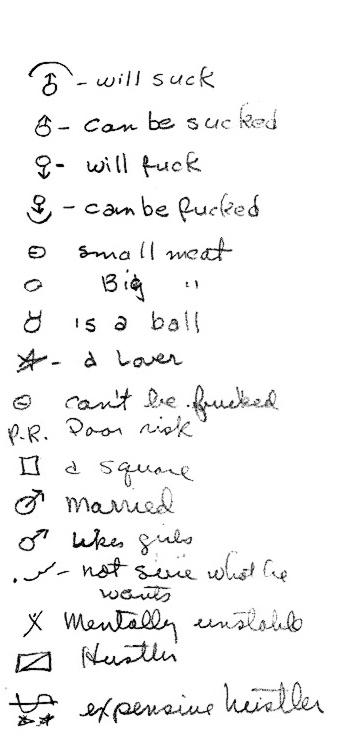 - will suck
- can be sucked
- will fuck
- can be fucked
small meat
Big "
is a ball
- a Lover
can't be fucked
P.R. Poor risk
a square
Married
likes girls
- not sure what he
wants
X Mentally unstable
Hustler
$ expensive hustler